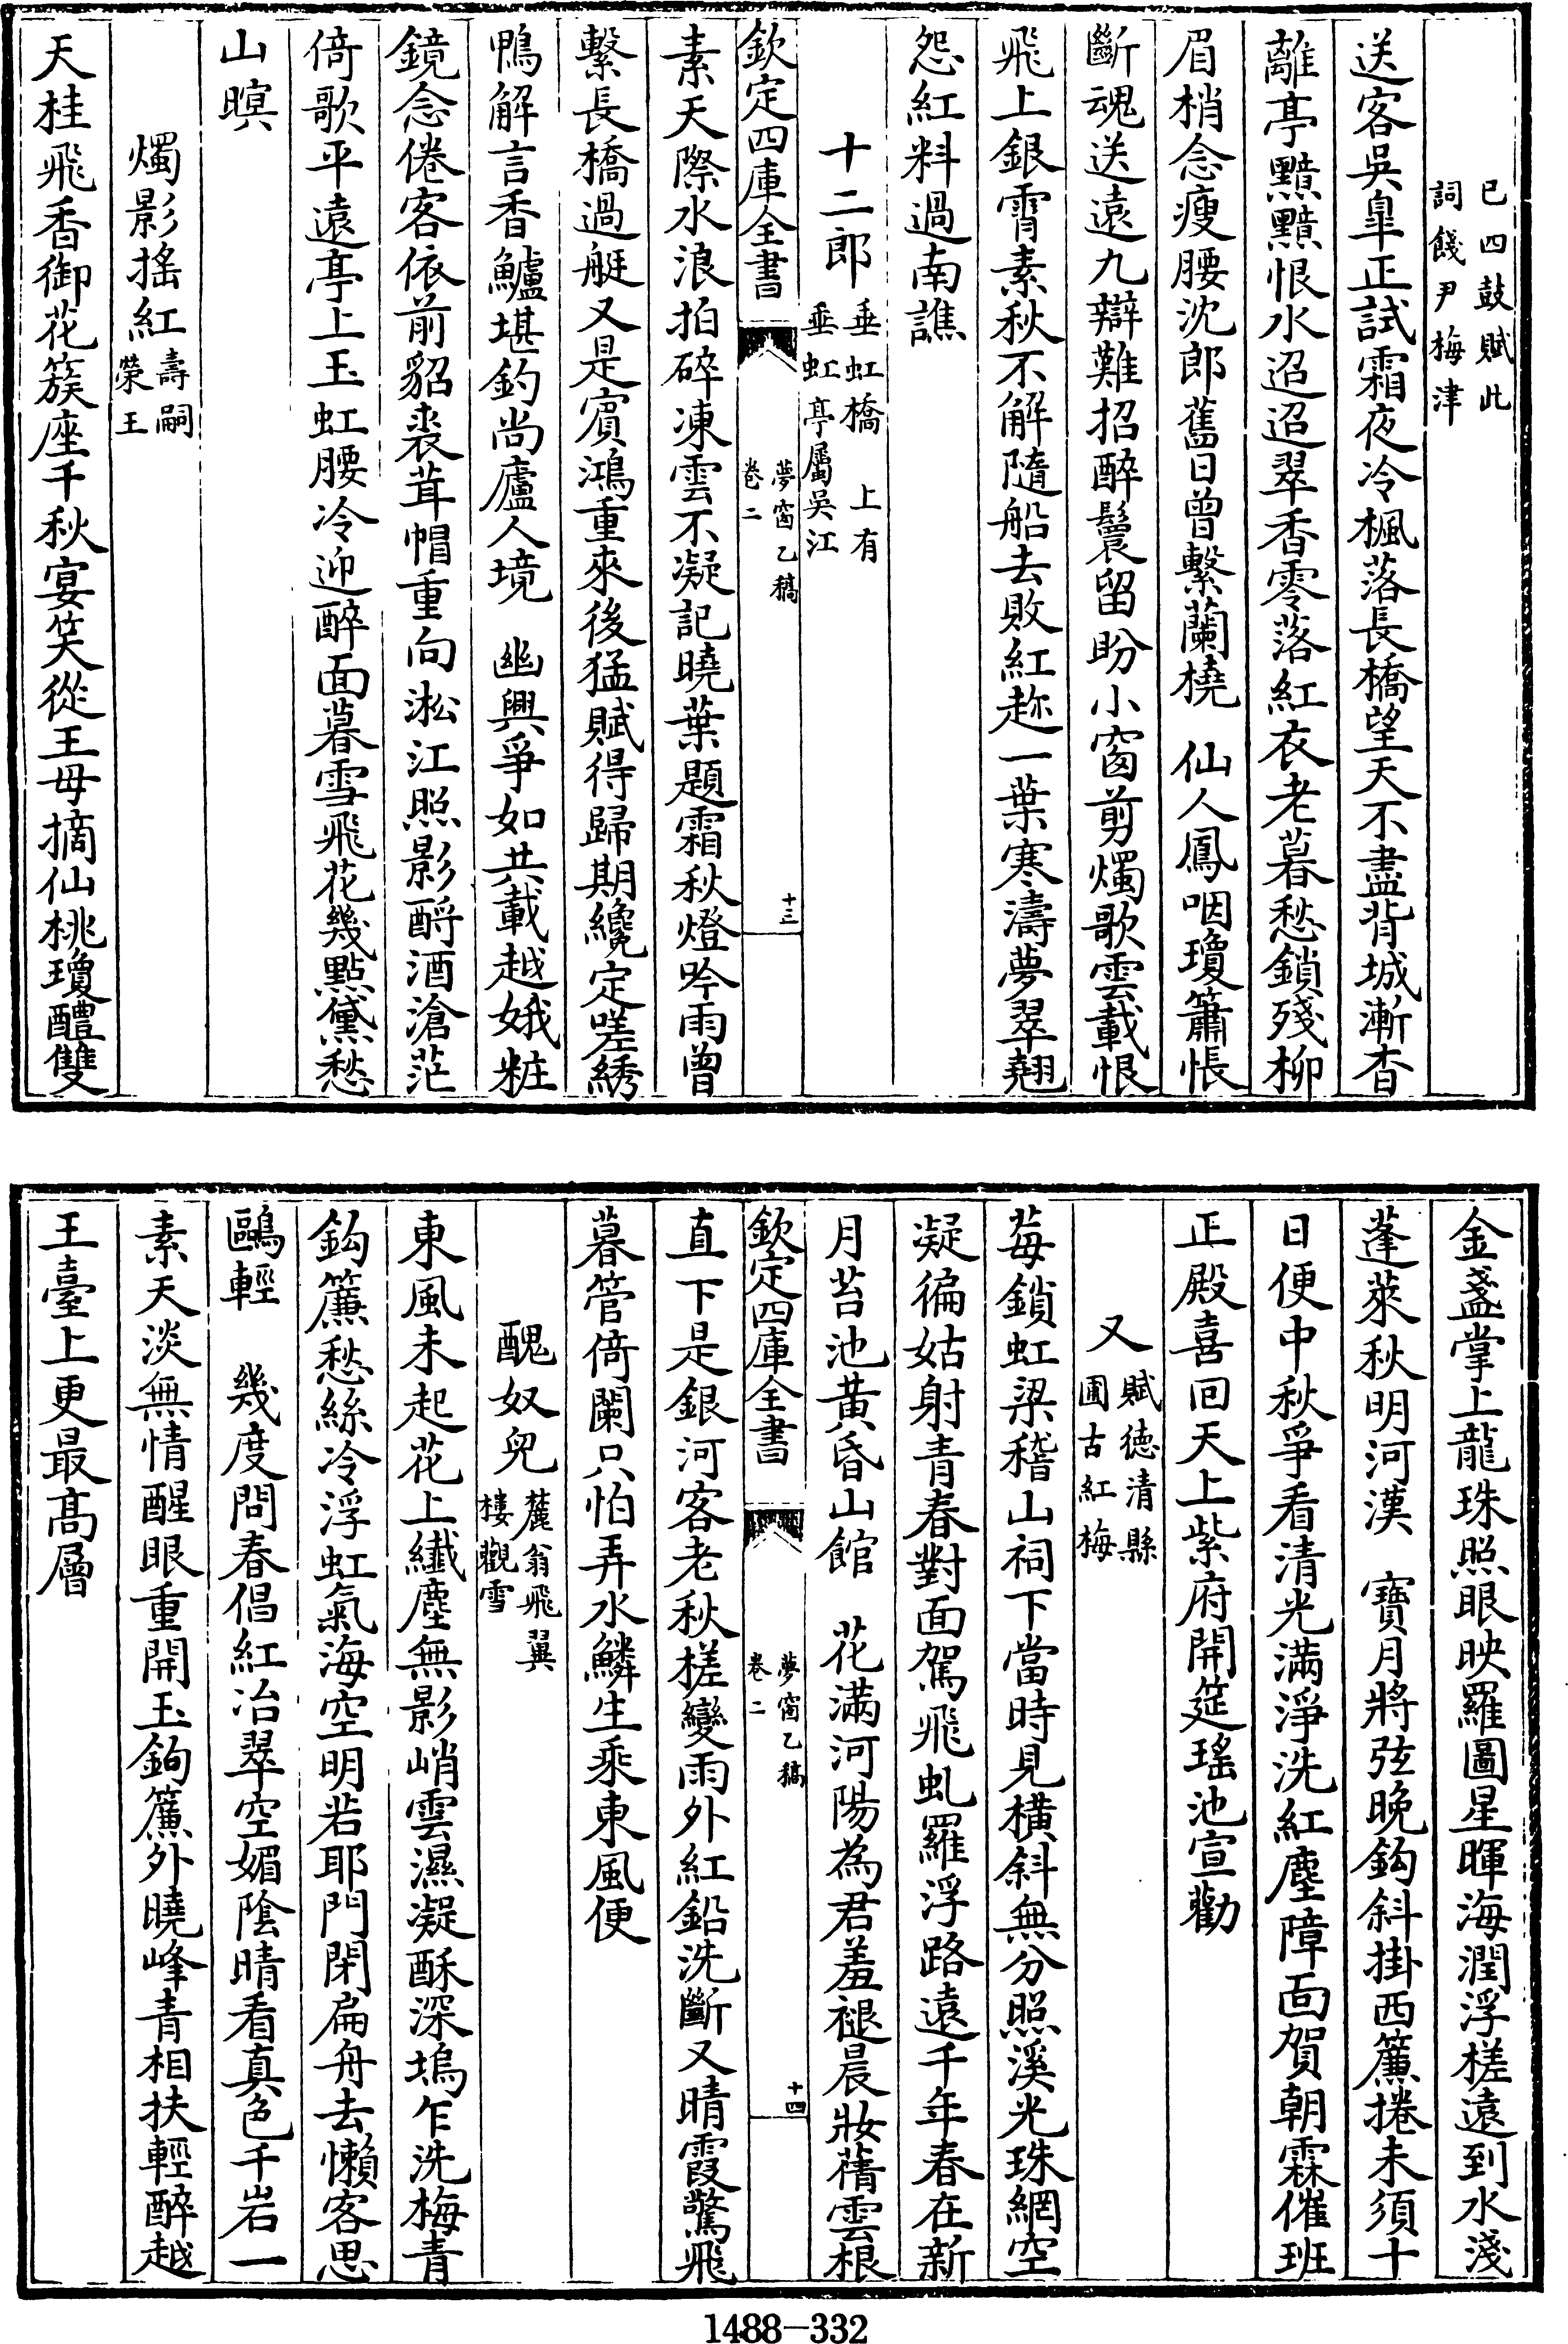 已四鼓賦此
詞餞尹梅津
送客吳臯正試霜夜冷楓落長橋望天不盡背城漸杳
離亭黯黯恨水迢迢翠香零落紅衣老暮愁鎖殘柳
眉梢念瘦腰沈郎舊日曾繫蘭橈　仙人鳳咽瓊簫悵
斷魂送遠九辯難招醉鬟留盼小窗剪燭歌雲載恨
飛上銀霄素秋不解隨船去敗紅趂一葉寒濤夢翠翹
怨紅料過南譙
十二郎垂虹橋　上有
垂虹亭屬吳江
欽定四庫全書
夢窗乙稿
卷二
十三
素天際水浪拍碎凍雲不凝記曉葉題霜秋燈吟雨曾
繫長橋過艇又是賓鴻重來後猛賦得歸期纔定嗟綉
鴨解言香鱸堪釣尚廬人境　幽興爭如共載越娥粧
鏡念倦客依前貂裘茸帽重向淞江照影酹酒滄茫
倚歌平遠亭上玉虹腰冷迎醉面暮雪飛花幾點黛愁
山暝
燭影搖紅壽嗣
榮王
天桂飛香御花簇座千秋宴笑從王母摘仙桃瓊醴雙
金盞掌上龍珠照眼映羅圖星暉海潤浮槎遠到水淺
蓬萊秋明河漢　寶月將弦晚鈎斜掛西簾捲未須十
日便中秋爭看清光滿淨洗紅塵障面賀朝霖催班
正殿喜回天上紫府開筵瑤池宣勸
又賦德清縣
圃古紅梅
莓鎖虹梁稽山祠下當時見橫斜無分照溪光珠網空
凝徧姑射青春對面駕飛虬羅浮路遠千年春在新
月苔池黃昏山館　花滿河陽為君羞褪晨妝蒨雲根
欽定四庫全書
夢窗乙稿
卷二
十四
直下是銀河客老秋槎變雨外紅鉛洗斷又晴霞驚飛
暮管倚闌只怕弄水鱗生乘東風便
醜奴兒麓翁飛翼
樓觀雪
東風未起花上纖塵無影峭雲濕凝酥深塢乍洗梅青
鈎簾愁絲冷浮虹氣海空明若耶門閉扁舟去懶客思
鷗輕　幾度問春倡紅冶翠空媚陰晴看真色千岩一
素天淡無情醒眼重開玉鉤簾外曉峰青相扶輕醉越
王臺上更最高層
1488—332